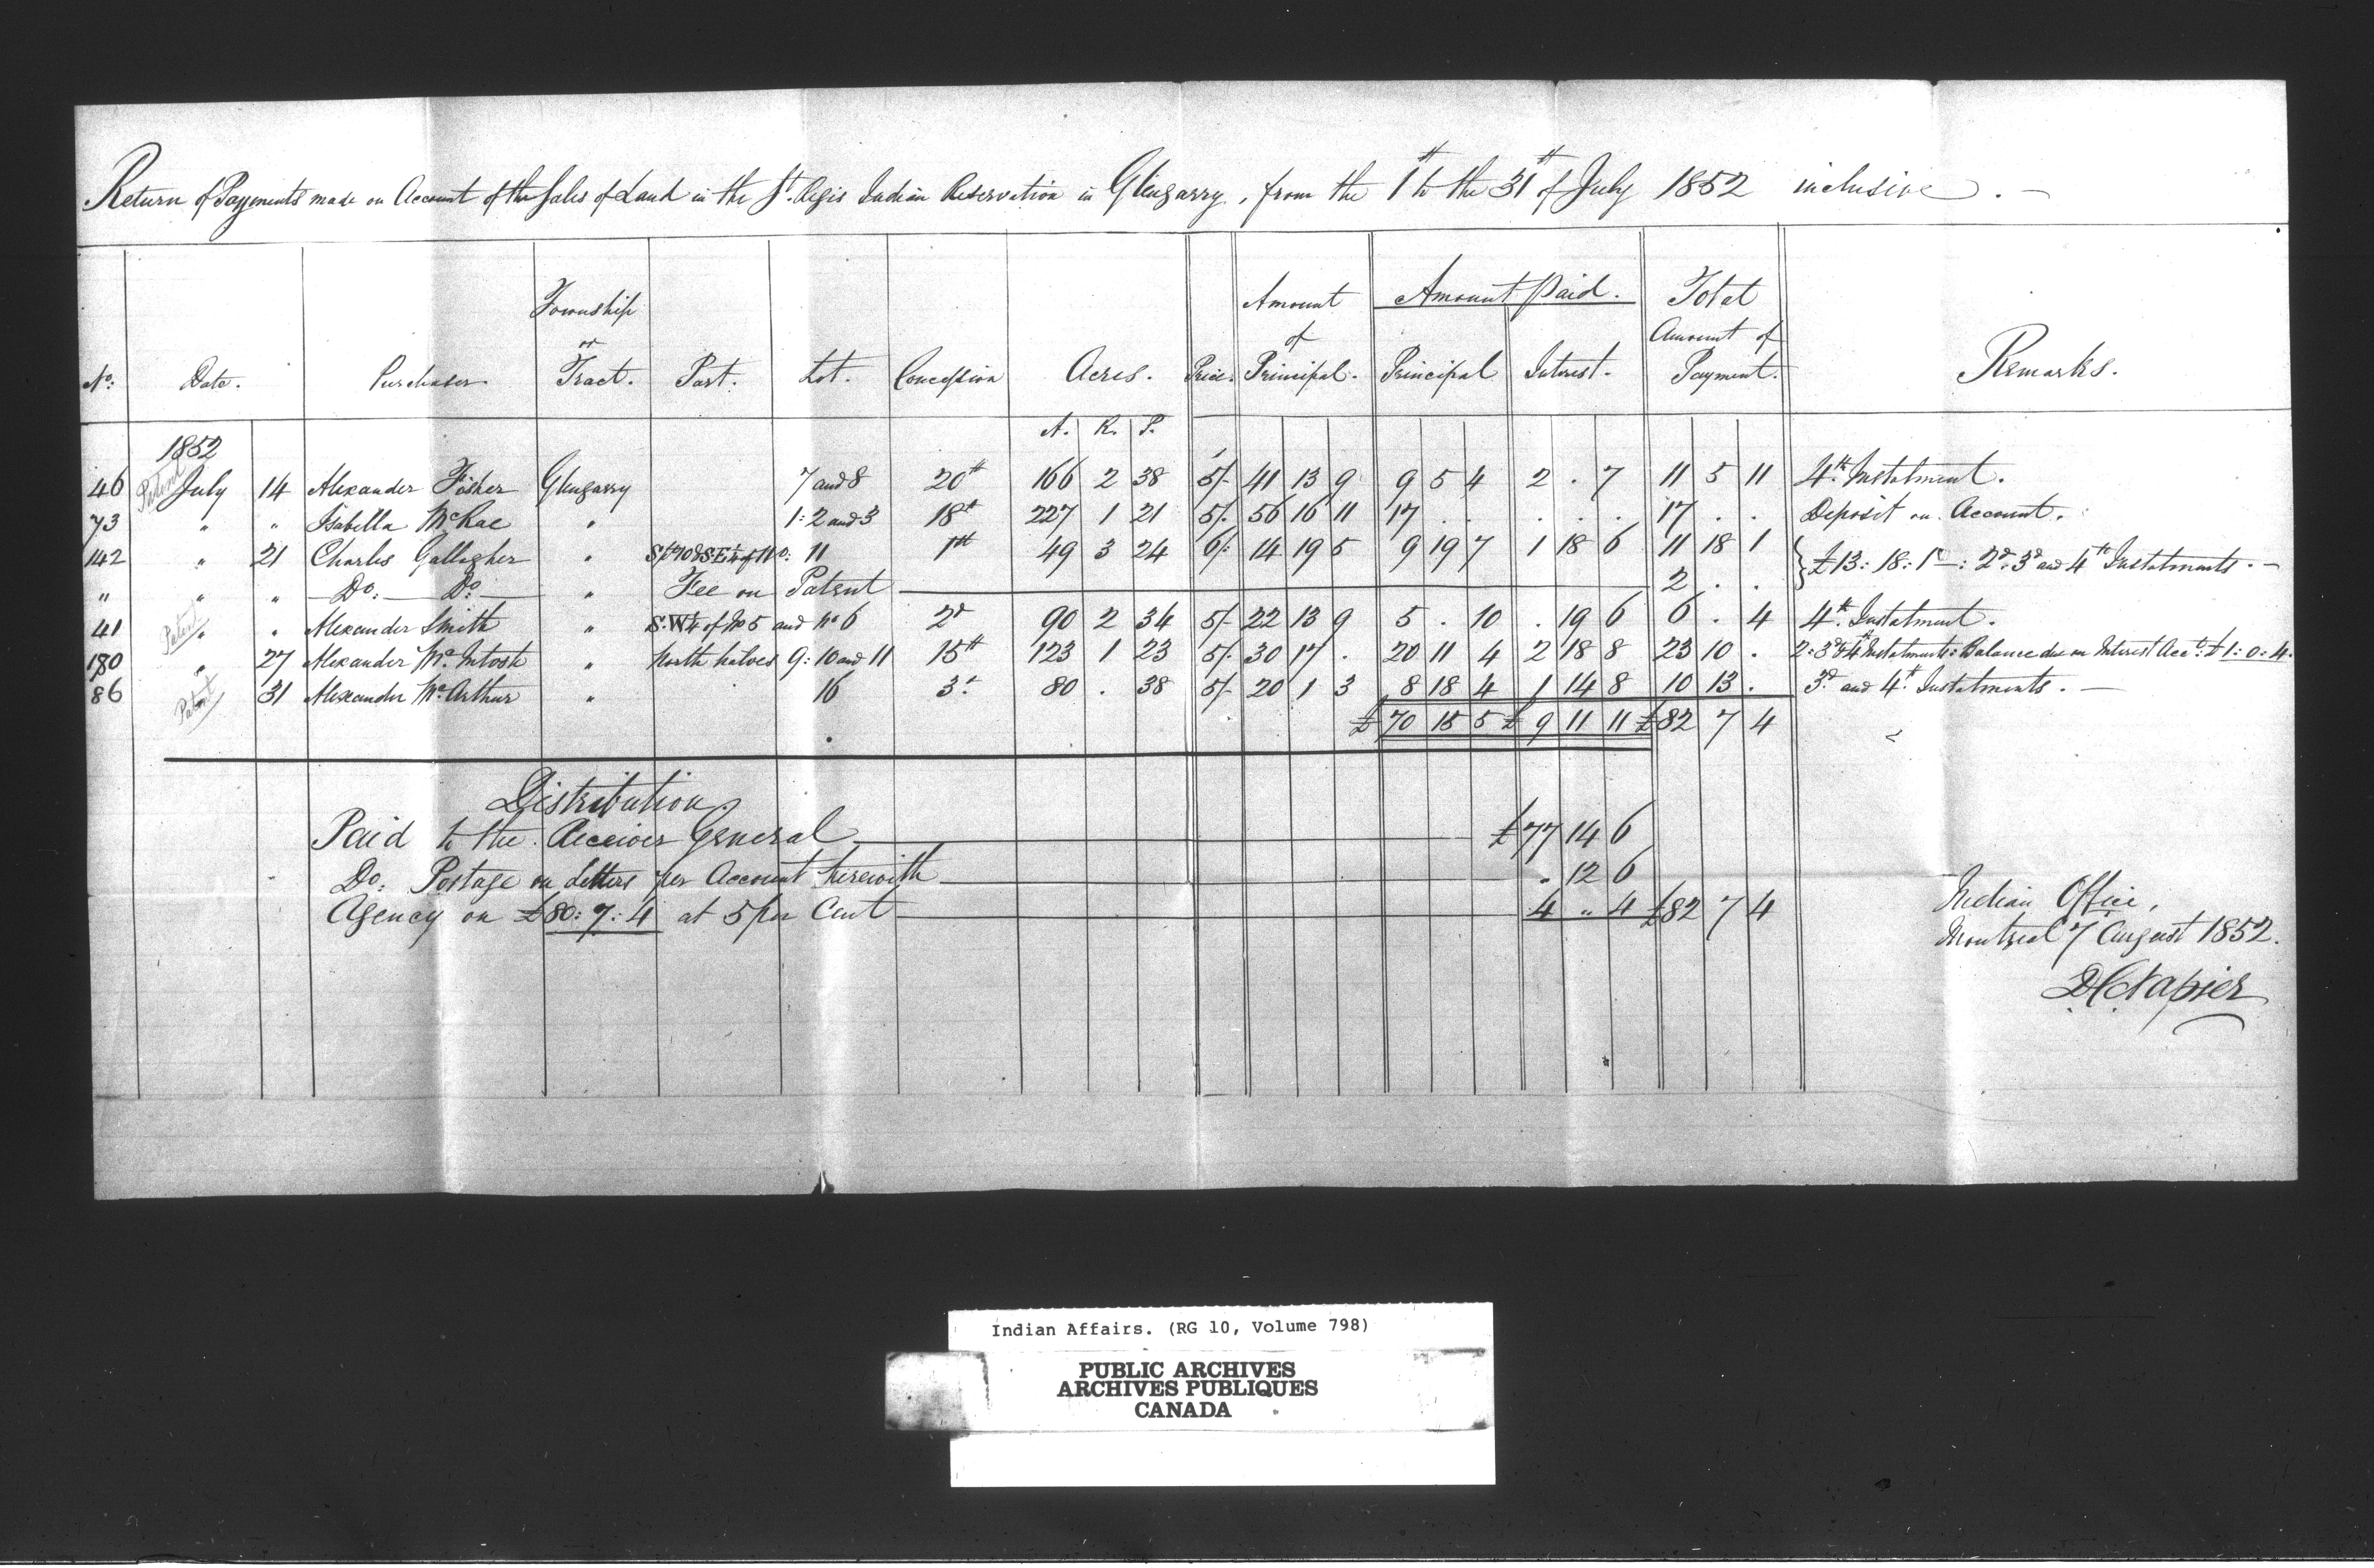 Return of Payments made on Account of the Sales of Land in the St. Regis Indian Reservation in Glengarry, from the 1st to the 31st of July 1852 inclusive. —
No: Date. Purchaser. Township or Tract. Part. Lot. Concession Acres. Price. Amount of Principal. Amount Paid. Principal Interest. Total Amount of Payment. Remarks.
A. R. P.
1852
46 Patent July 14 Alexander Fisher Glengarry 7 and 8 20th 166 2 38 5/- 41 13 9 9 5 4 2 . 7 11 5 11 4th Instalment.
73 " " Isabella McRae " 1: 2 and 3 18th 227 1 21 5/- 56 16 11 17 . . . . . 17 . . Deposit on Account.
142 " 21 Charles Gallagher " 11 1st 49 3 24 6/- 14 19 5 9 19 7 1 18 6 11 18 1 } £13: 18: 1d —: 2d 3d and 4th Instalments. —
" " " Do: Do: " Fee on Patent 2 . .
41 Patent " " Alexander Smith " S.W¼ of No 5 and No 6 2d 90 2 34 5/- 22 13 9 5 . 10 . 19 6 6 . 4 4th Instalment.
180 " 27 Alexander McIntosh " North halves 9: 10 and 11 15th 123 1 23 5/- 30 17 . 20 11 4 2 18 8 23 10 . 2: 3d & 4th Instalments: Balance due on Interest Acct: £1: 0: 4.
86 Patent " 31 Alexander McArthur " 16 3d 80 . 38 5/- 20 1 3 8 18 4 1 14 8 10 13 . 3d and 4th Instalments. —
£ 70 15 5 £ 9 11 11 £82 7 4
Distribution
Paid to the Receiver General £77 14 6
Do: Postage on Letters per Account herewith . 12 6
Agency on £80: 7: 4 at 5 per Cent 4 " 4 £82 7 4
Indian Office,
Montreal 7 August 1852.
D C Napier
Indian Affairs. (RG 10, Volume 798)
PUBLIC ARCHIVES
ARCHIVES PUBLIQUES
CANADA